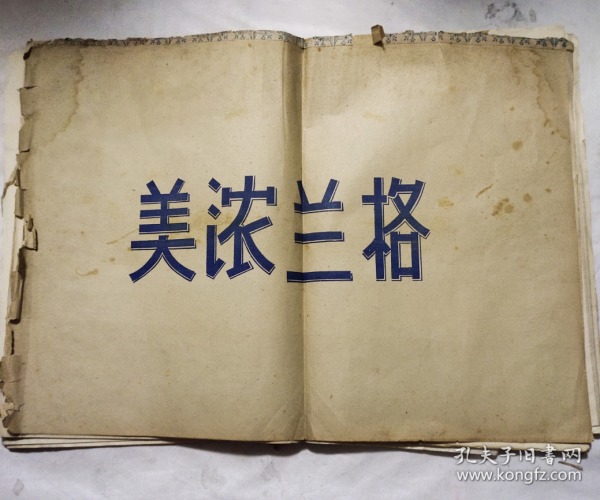 美浓兰格
孔夫子旧书网
www.kongfz.com